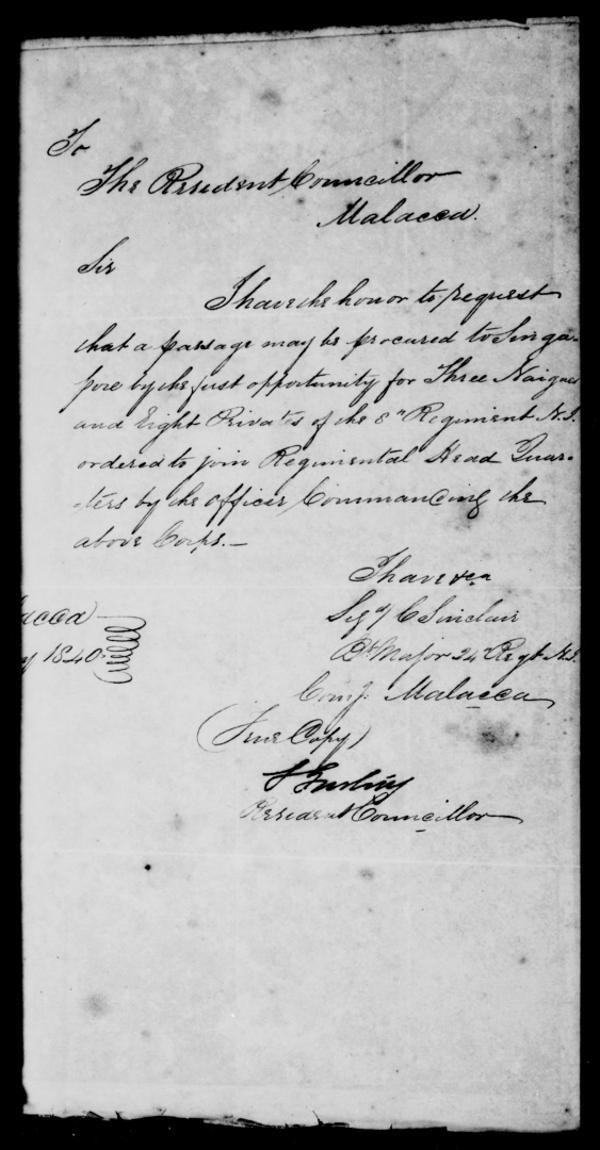 To
The Resident Councillor
Malacca.
Sir
I have the honor to request
that a passage may be procured to Singa-
pore by the first opportunity for Three Naigues
and Eight Privates of the 8th Regiment N.I.
ordered to join Regimental Head Quar-
-ters by the officer Commanding the
above Corps.—
I have &ca
Sigd/ C Sinclair
Bt Major 24th Regt N.I.
Comg. Malacca
acca
y 1840
(True Copy)
Resident Councillor